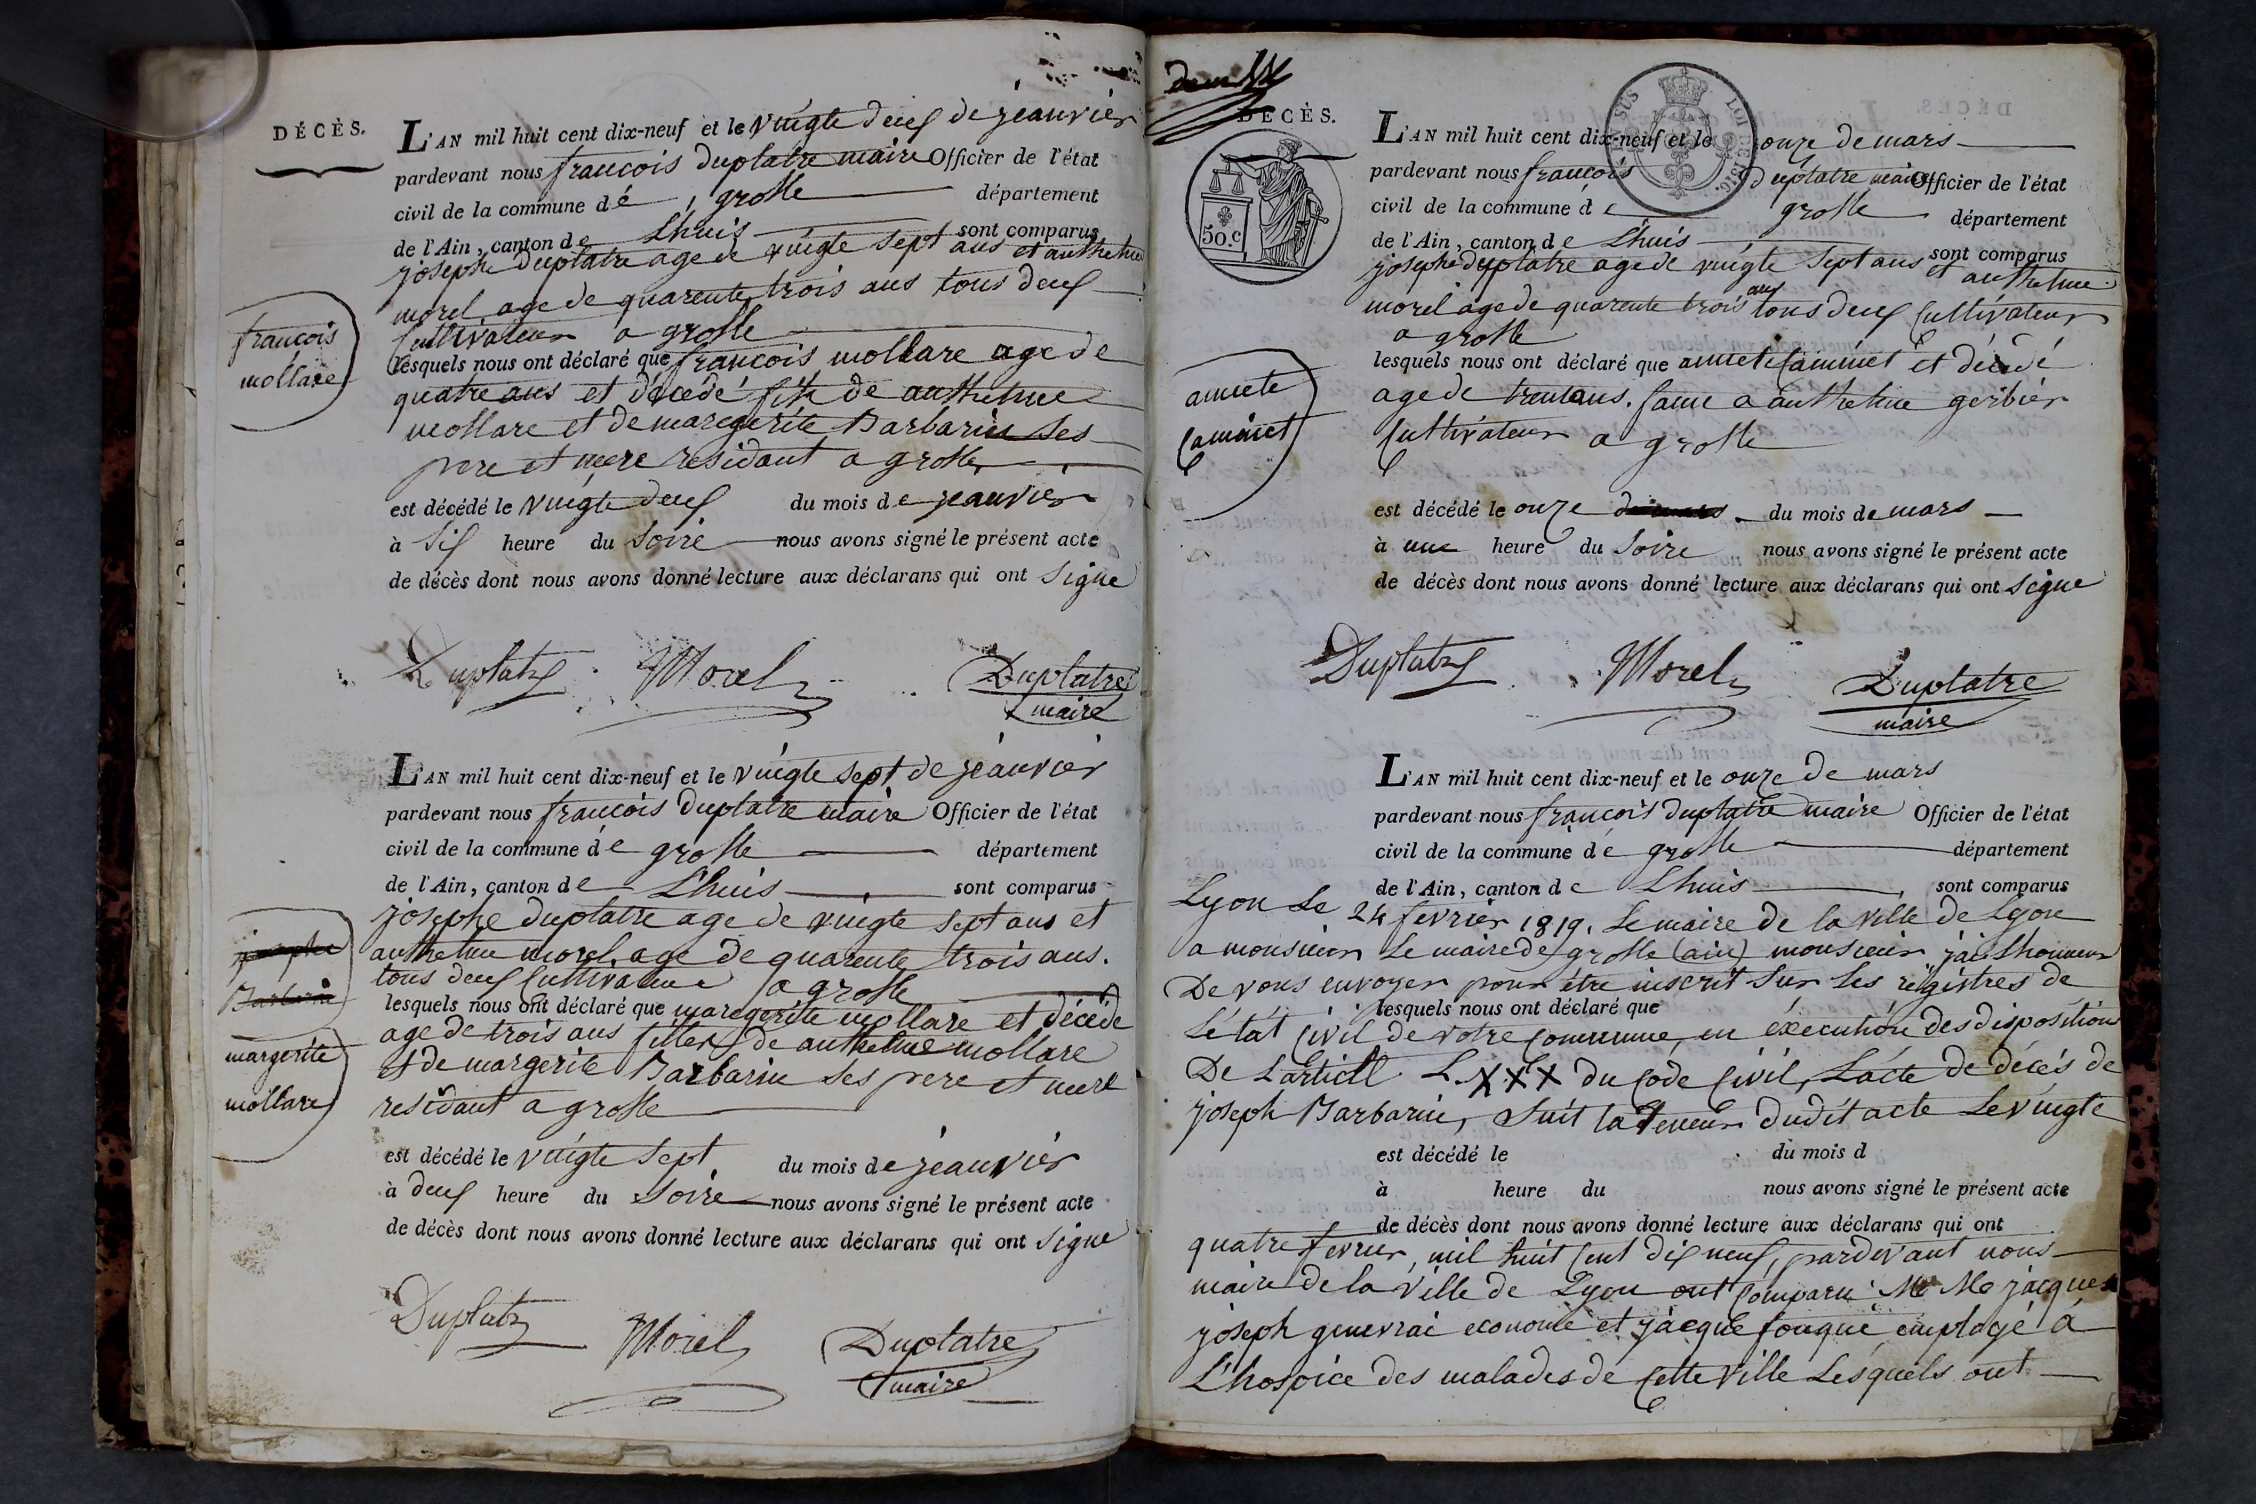 DÉCÈS.
L'AN mil huit cent dix-neuf et le vuigte deus de jeanvier
pardevant nous francois Duplatre maire Officier de l'état
civil de la commune dé groslle département
de l'Ain, canton de Lhuis sont comparus
josephe Duplatre age de vuigte sept ans et anthelme
morel age de quarente trois ans tous deus
Cultivateur a groslle
francois
mollare
lesquels nous ont déclaré que francois mollare age de
quatre ans et décédé fils de anthelme
mollare et de maregerite Barbarin ses
pere et mere residant a groslle
est décédé le vuigte deus du mois de jeanvier
à sis heure du soire nous avons signé le présent acte
de décès dont nous avons donné lecture aux déclarans qui ont signe
Duplatre Morel Duplatre
maire
L'AN mil huit cent dix-neuf et le vuigte sept de jeanvier
pardevant nous francois Duplatre maire Officier de l'état
civil de la commune dé groslle département
de l'Ain, canton de Lhuis sont comparus
josephe duplatre age de vuigte sept ans et
anthelme morel age de quarente trois ans.
tous deus Cultivateur a groslle
Barbarin
margerite
mollare
lesquels nous ont déclaré que maregerite mollare et décédé
age de trois ans filler de anthelme mollare
et de margerite Barbarin ses pere et mere
residant a groslle
est décédé le vuigte sept du mois de jeanvier
à deus heure du soire nous avons signé le présent acte
de décès dont nous avons donné lecture aux déclarans qui ont signe
Duplatre Morel Duplatre
maire
DÉCÈS.
50.c
LOI DE 1816.
L'AN mil huit cent dix-neuf et le onze de mars
pardevant nous francois duplatre maire Officier de l'état
civil de la commune de groslle département
de l'Ain, canton de Lhuis sont comparus
josephe duplatre age de vuigte sept ans et anthelme
morel age de quarente trois ans tous deus Cultivateur
a groslle
anniete
Caminet
lesquels nous ont déclaré que anniete Caminet et décédé
age de trentans. fame a anthelme gerbier
Cultivateur a groslle
est décédé le onze de mars du mois de mars
à une heure du soire nous avons signé le présent acte
de décès dont nous avons donné lecture aux déclarans qui ont signe
Duplatre Morel Duplatre
maire
L'AN mil huit cent dix-neuf et le onze de mars
pardevant nous francois duplatre maire Officier de l'état
civil de la commune dé groslle département
de l'Ain, canton de Lhuis sont comparus
Lyon Le 24 fevrier 1819. Le maire de la ville de Lyon
a monsieur Le maire de groslle (ain) monsieur j'ai Lhonneur
De vous envoyer pour être inscrit sur Les régistres de
lesquels nous ont déclaré que
L'état Civil de votre Commune, en éxécution des disposition
De L'articll L.XXX du Code Civil, L'acte de décés de
joseph Barbarin, suit la teneur dudit acte Le vuigte
est décédé le du mois d
à heure du nous avons signé le présent acte
de décès dont nous avons donné lecture aux déclarans qui ont
quatre fevrier, mil huit Cent dis neuf, pardevant nous
maire de la ville de Lyon ont Comparu Mr Me jacques
joseph genevrai econome et jacque fouque employé á
L'hospice des malades de Cette ville Lesquels ont